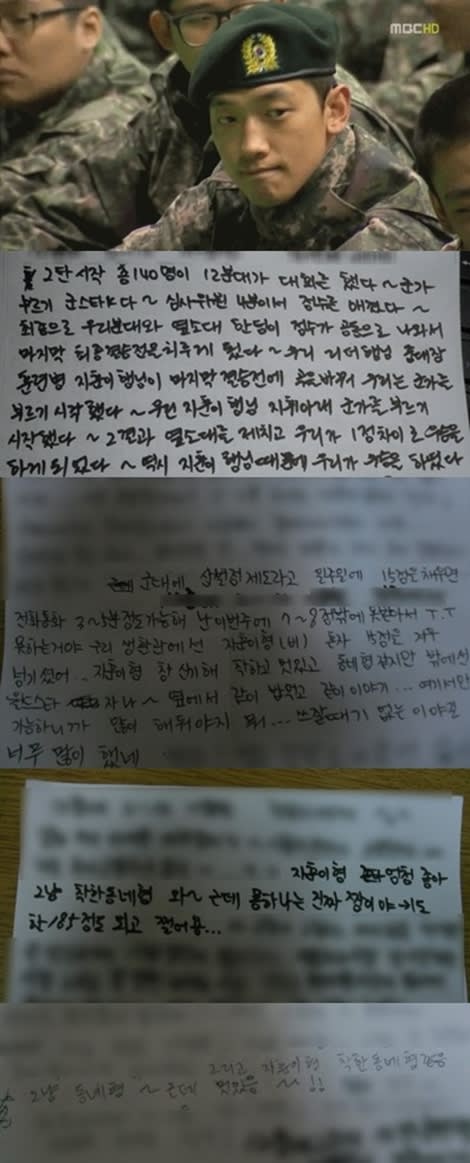 MBC HD
2탄 시작 총 140명이 12분대가 대회는 했다 ~ 군가
부르기 군스타K다 ~ 심사위원 4분이서 점수를 매겼다 ~
최종으로 우리분대와 열소대 한팀이 점수가 공동으로 나와서
마지막 최종결승전은 치루게 됐다 ~ 우리 리더 행님 중대장
훈련병 지훈이행님이 마지막 결승전에 우리는 군가를
부르기 시작했다 ~ 우린 지훈이 행님 지휘아래 군가를 부르기
시작했다 ~ 열소대를 제치고 우리가 1점차이로 우승을
하게 되었다 ~ 역시 지훈이 행님 때문에 우리가 우승을 하였다
군대에 상벌점제도라고 일주일에 15점을 채우면
전화통화 3~5분정도가능해 난 이번주에 7~8점밖에 못받아서 T.T
못하는거야 우리 생활관에선 지훈이형(비) 혼자 상점은
넘기셨어.. 지훈이형 참 신기해 착하고 멋있고 동네형 같지만 밖에선
월드스타 자나 ~ 옆에서 같이 밥먹고 같이 이야기... 여기서만
가능하니까 많이 해둬야지 뭐... 쓰잘때기 없는 이야길
너무 많이 했네
지훈이형 엄청 좋아
그냥 착한동네형 와~ 근데 몸하나는 진짜 짱이야 키도
한 185정도 되고 쩔어용...
그리고 지훈이형 착한동네형같음
그냥 동네형 ~ 근데 멋있음 ~!!